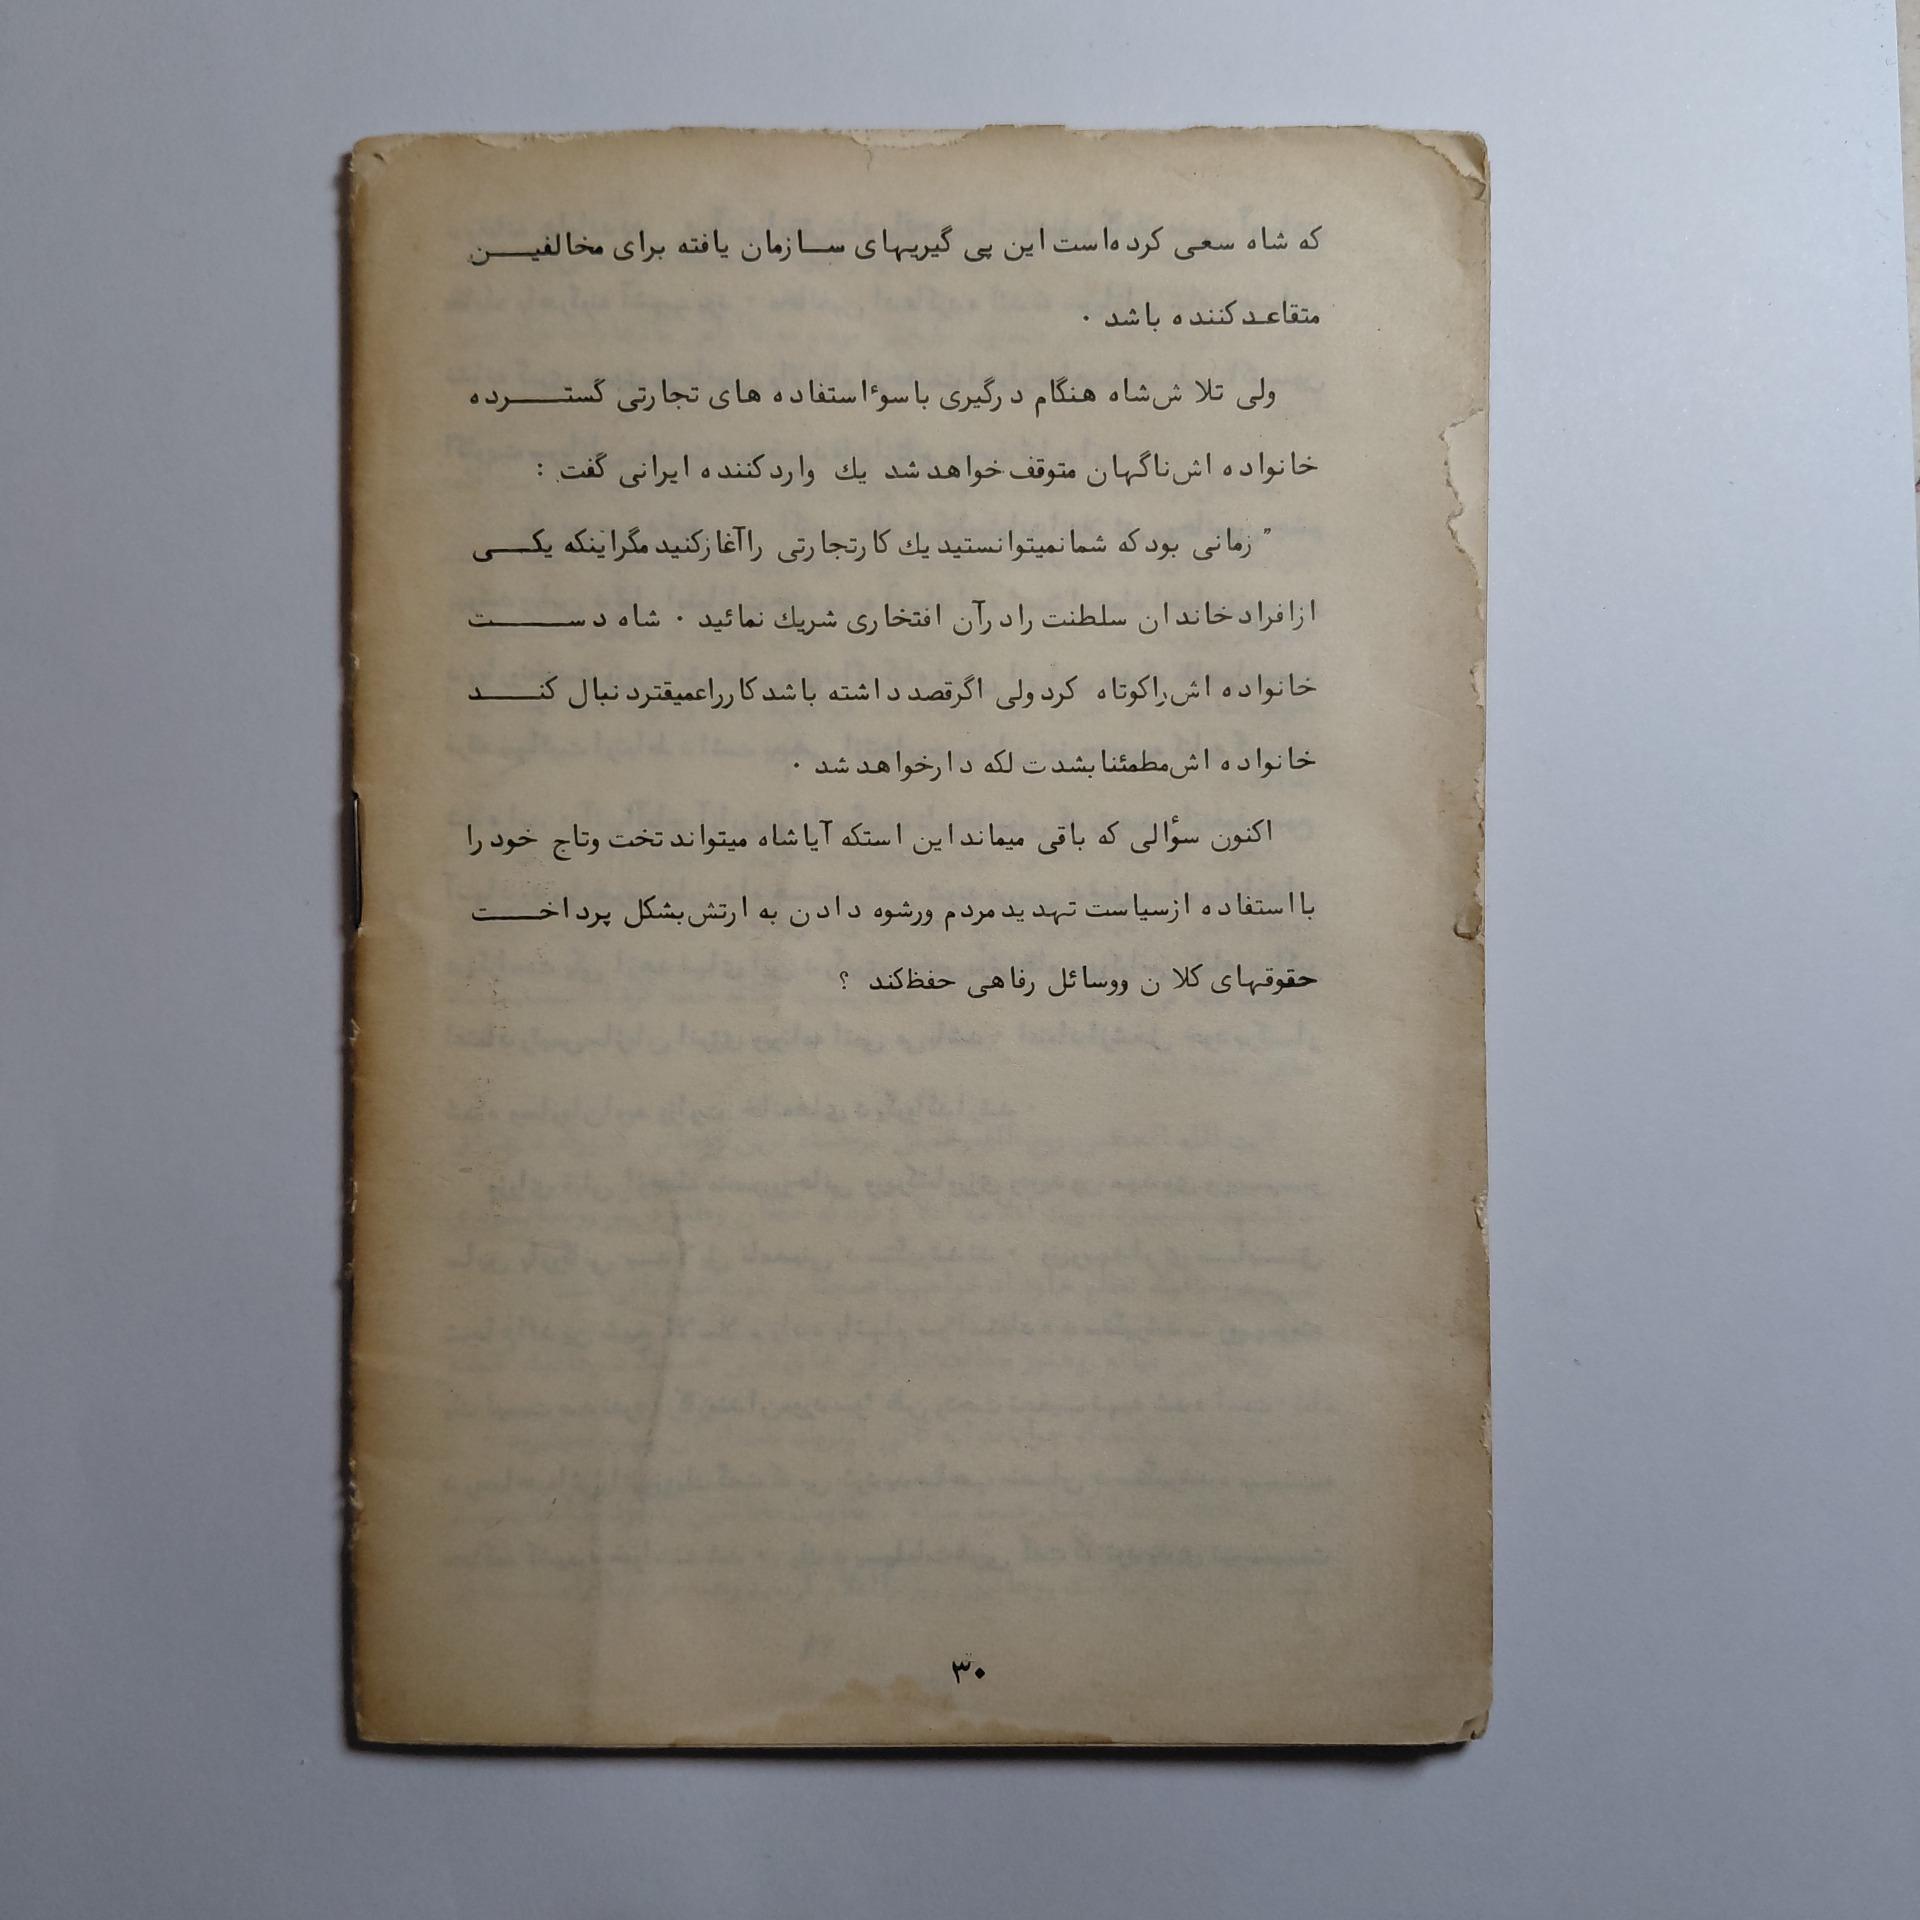 که شاه سعی کرده‌است این پی گیریهای سازمان یافته برای مخالفین
متقاعدکننده باشد .
ولی تلاش شاه هنگام درگیری باسوءاستفاده های تجارتی گسترده
خانواده اش ناگهان متوقف خواهدشد یك واردکننده ایرانی گفت :
" زمانی بودکه شمانمیتوانستیدیك کارتجارتی راآغازکنیدمگراینکه یکی
ازافرادخاندان سلطنت رادرآن افتخاری شریك نمائید . شاه دست
خانواده اش راکوتاه کردولی اگرقصدداشته باشدکارراعمیقتردنبال کند
خانواده اش مطمئنابشدت لکه دارخواهدشد .
اکنون سؤالی که باقی میمانداین استکه آیاشاه میتواندتخت وتاج خودرا
بااستفاده ازسیاست تهدیدمردم ورشوه دادن به ارتش بشکل پرداخت
حقوقهای کلان ووسائل رفاهی حفظکند ؟
۳۰